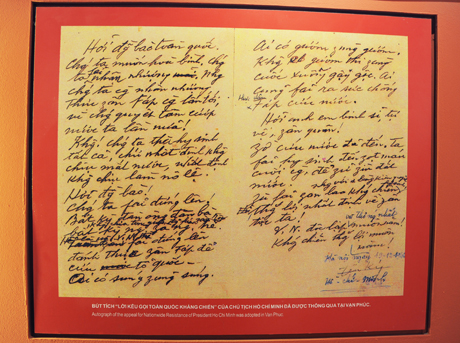 Hỡi đg bào toàn quốc.
Chg ta muốn hoà bình, chg
ta nhân nhượng. Nhg
chg ta cg nhân nhượng
Thực zân Fáp cg lấn tới,
vì chg quyết tâm cướp
nước ta lần nữa!
Khg! chg ta thà hy sinh
tất cả, chứ nhất định khg
chịu mất nước, nhất định
khg chịu làm nô lệ.
Hỡi đg bào!
Chg ta fải đứng lên.
Bất kỳ đàn ông, đàn bà,
bất kỳ ng già, ng trẻ,
fải đứng lên
đánh thực zân Fáp để
cứu tổ quốc –
Ai có súng zùng súng.
Ai có gươm zùng gươm.
Khg có gươm thì zùng
cuốc xuổng gậy gộc. Ai
cũng fải ra sức chống
thực zân
Fáp cứu nước.
Hỡi anh em binh sĩ tự
vệ, zân quân!
Zờ cứu nước đã đến. Ta
fải hy sinh đến zọt máu
cuối cg, để zữ zìn đất
nước.
lao khổ,
nhất định về zân
tộc ta!
V. N. độc lập muôn năm!
Khg chiến thg lợi muôn
năm!
Hà nội ngày 19-12-1946
Hồ-chí-Minh
BÚT TÍCH "LỜI KÊU GỌI TOÀN QUỐC KHÁNG CHIẾN" CỦA CHỦ TỊCH HỒ CHÍ MINH ĐÃ ĐƯỢC THÔNG QUA TẠI VẠN PHÚC.
Autograph of the appeal for Nationwide Resistance of President Ho Chi Minh was adopted in Van Phuc.